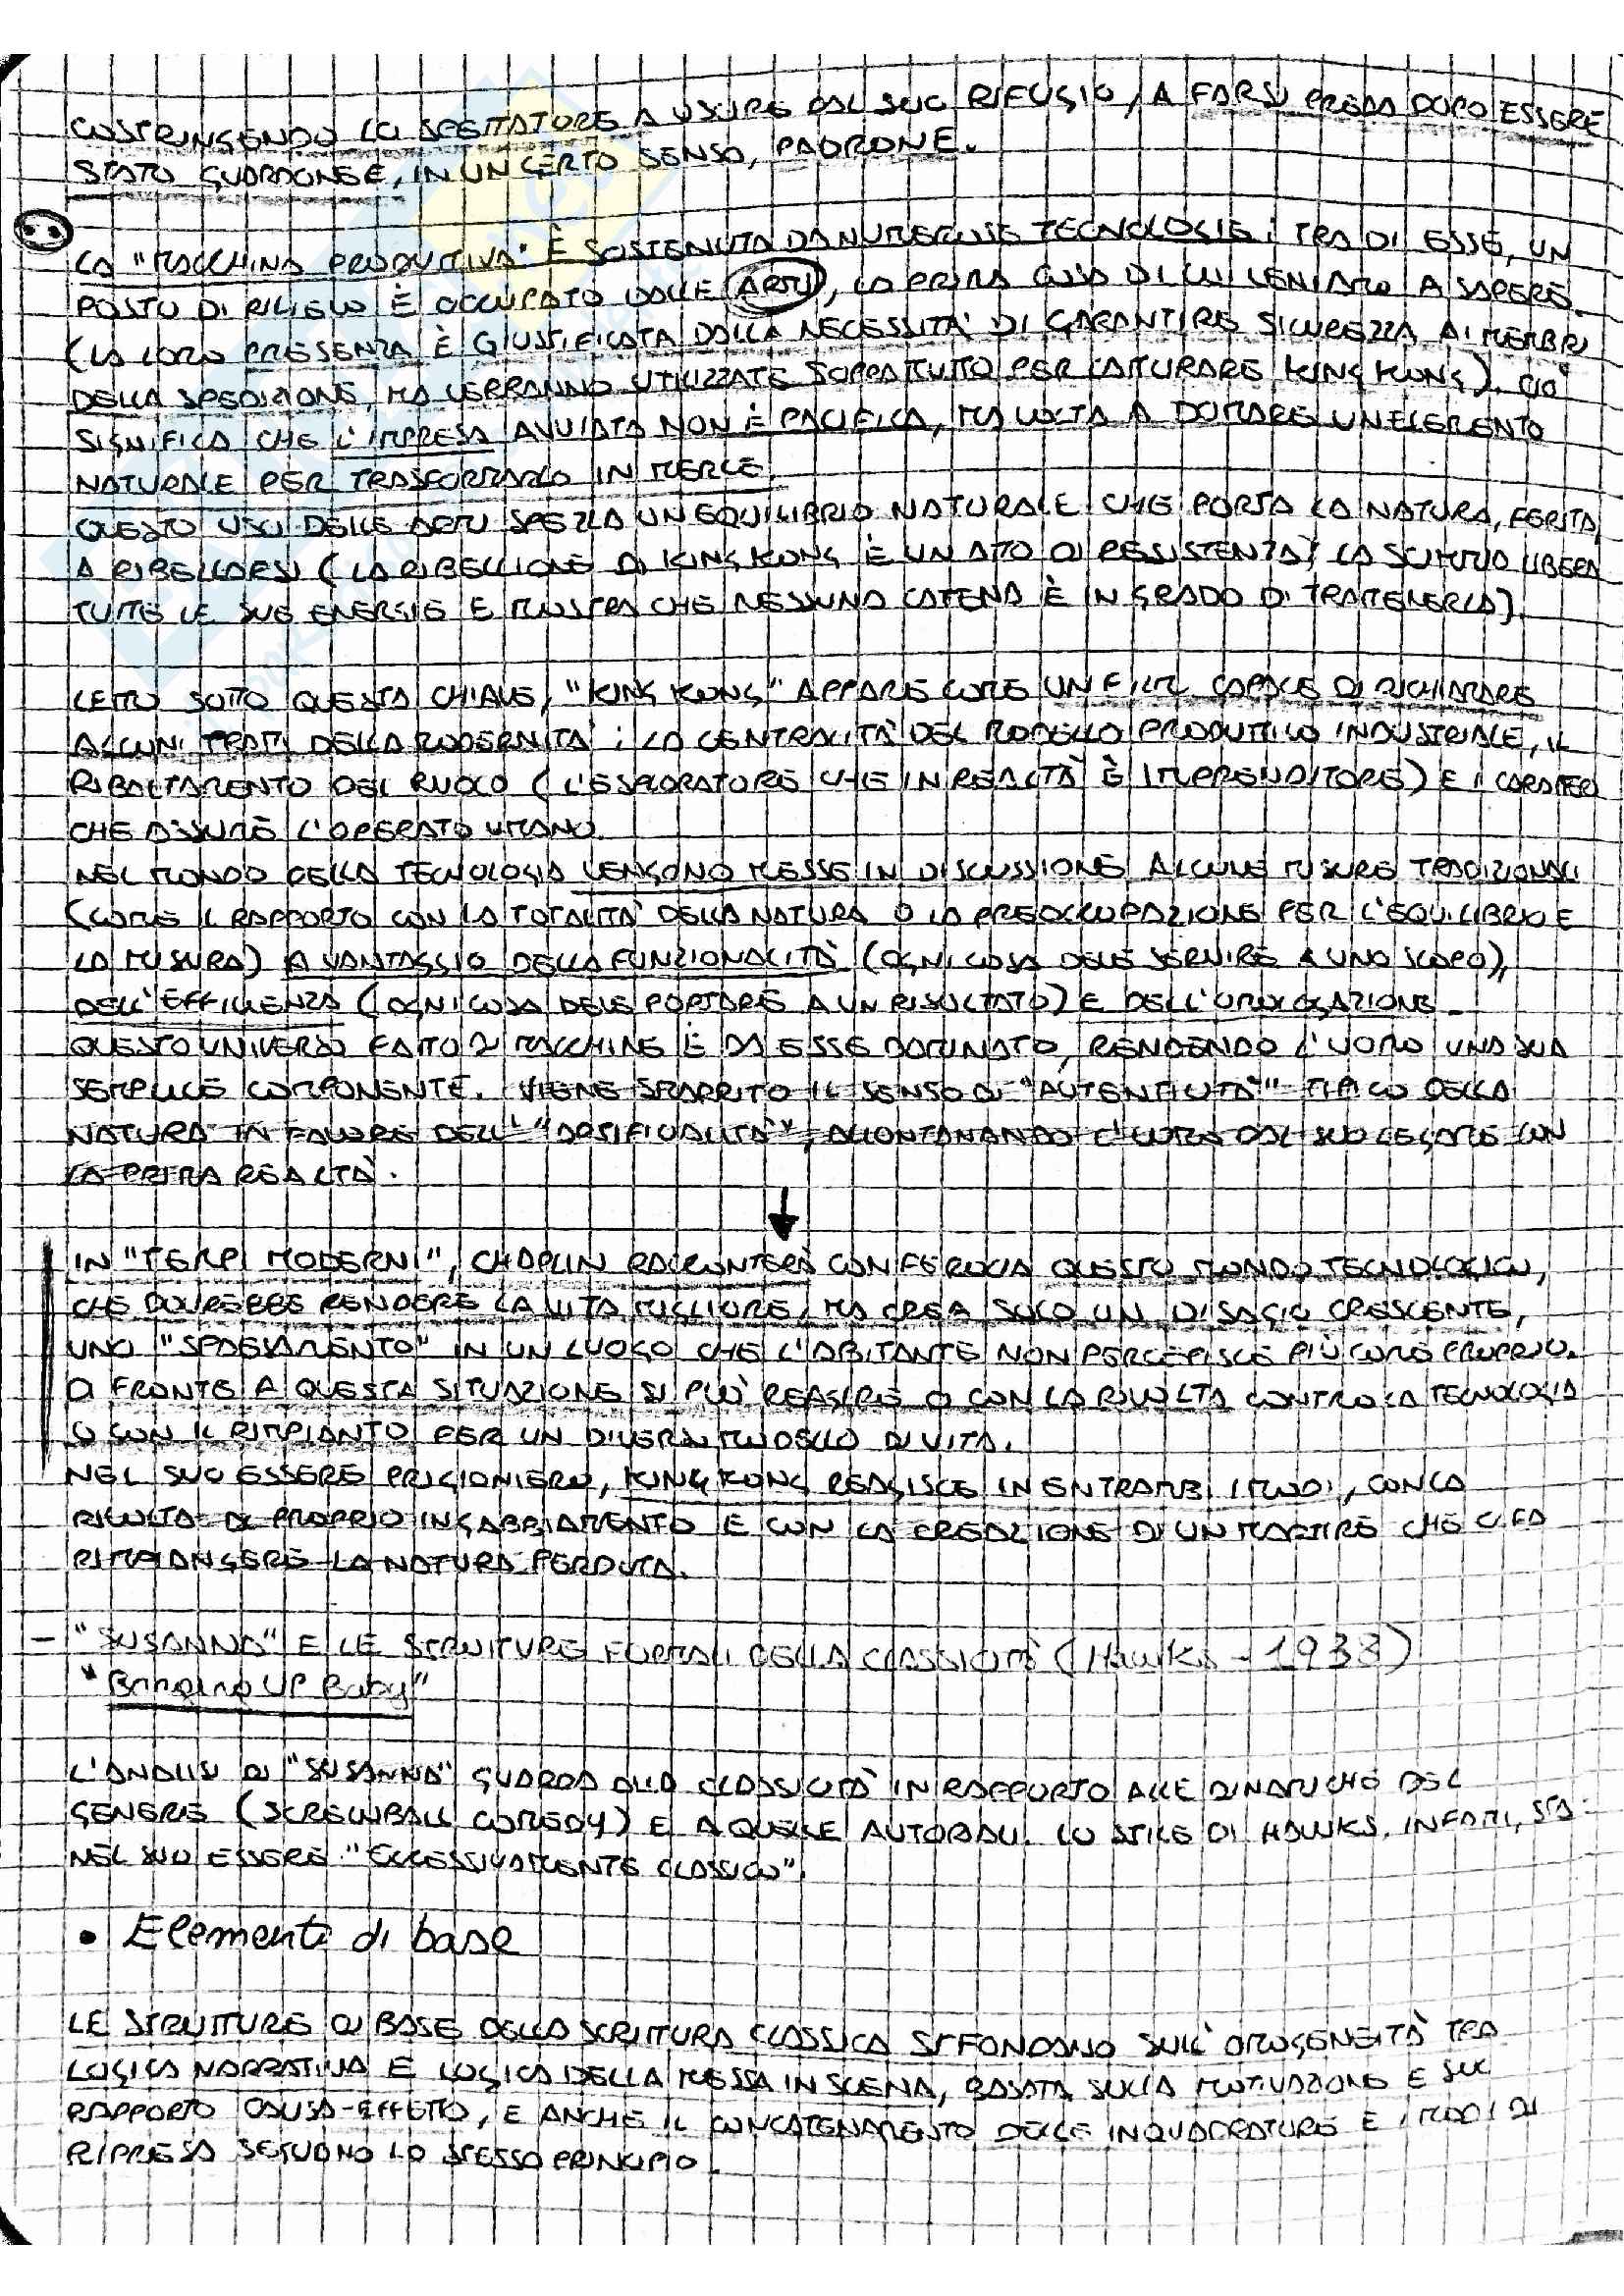 COSTRINGENDO LO SPETTATORE A USCIRE DAL SUO RIFUGIO, A FARSI PREDA DOPO ESSERE
STATO GUARDONE E, IN UN CERTO SENSO, PADRONE.
LA "MACCHINA PRODUTTIVA" È SOSTENUTA DA NUMEROSE TECNOLOGIE; TRA DI ESSE, UN
POSTO DI RILIEVO È OCCUPATO DALLE ARMI, LA PRIMA COSA DI CUI VENIAMO A SAPERE
(LA LORO PRESENZA È GIUSTIFICATA DALLA NECESSITÀ DI GARANTIRE SICUREZZA AI MEMBRI
DELLA SPEDIZIONE, MA VERRANNO UTILIZZATE SOPRATTUTTO PER CATTURARE KING KONG). CIÒ
SIGNIFICA CHE L'IMPRESA AVVIATA NON È PACIFICA, MA VOLTA A DOMARE UN ELEMENTO
NATURALE PER TRASFORMARLO IN MERCE.
QUESTO USO DELLE ARMI SPEZZA UN EQUILIBRIO NATURALE CHE PORTA LA NATURA, FERITA,
A RIBELLARSI (LA RIBELLIONE DI KING KONG È UN ATTO DI RESISTENZA; LA SCIMMIA LIBERA
TUTTE LE SUE ENERGIE E MOSTRA CHE NESSUNA CATENA È IN GRADO DI TRATTENERLA).
LETTO SOTTO QUESTA CHIAVE, "KING KONG" APPARE COME UN FILM CAPACE DI RICHIAMARE
ALCUNI TRATTI DELLA MODERNITÀ: LA CENTRALITÀ DEL MODELLO PRODUTTIVO INDUSTRIALE, IL
RIBALTAMENTO DEL RUOLO (L'ESPLORATORE CHE IN REALTÀ È IMPRENDITORE) E I CARATTERI
CHE ASSUME L'OPERATO UMANO.
NEL MONDO DELLA TECNOLOGIA VENGONO MESSE IN DISCUSSIONE ALCUNE MISURE TRADIZIONALI
(COME IL RAPPORTO CON LA TOTALITÀ DELLA NATURA O LA PREOCCUPAZIONE PER L'EQUILIBRIO E
LA MISURA) A VANTAGGIO DELLA FUNZIONALITÀ (OGNI COSA DEVE SERVIRE A UNO SCOPO),
DELL'EFFICIENZA (OGNI COSA DEVE PORTARE A UN RISULTATO) E DELL'OMOLOGAZIONE.
QUESTO UNIVERSO FATTO DI MACCHINE È DA ESSE DOMINATO, RENDENDO L'UOMO UNA SUA
SEMPLICE COMPONENTE. VIENE SMARRITO IL SENSO DI "AUTENTICITÀ" TIPICO DELLA
NATURA IN FAVORE DELL'"ARTIFICIALITÀ", ALLONTANANDO L'UOMO DAL SUO LEGAME CON
LA PRIMA REALTÀ.
IN "TEMPI MODERNI", CHAPLIN RACCONTERÀ CON FEROCIA QUESTO MONDO TECNOLOGICO,
CHE DOVREBBE RENDERE LA VITA MIGLIORE, MA CREA SOLO UN DISAGIO CRESCENTE,
UNO "SPAESAMENTO" IN UN LUOGO CHE L'ABITANTE NON PERCEPISCE PIÙ COME PROPRIO.
DI FRONTE A QUESTA SITUAZIONE SI PUÒ REAGIRE O CON LA RIVOLTA CONTRO LA TECNOLOGIA
O CON IL RIMPIANTO PER UN DIVERSO MODELLO DI VITA.
NEL SUO ESSERE PRIGIONIERO, KING KONG REAGISCE IN ENTRAMBI I MODI, CON LA
RIVOLTA AL PROPRIO INGABBIAMENTO E CON LA CREAZIONE DI UN MARTIRE CHE CI FA
RIMPIANGERE LA NATURA PERDUTA.
- "SUSANNA" E LE STRUTTURE FORMALI DELLA CLASSICITÀ (Hawks - 1938)
"Bringing UP Baby"
L'ANALISI DI "SUSANNA" GUARDA ALLA CLASSICITÀ IN RAPPORTO ALLE DINAMICHE DEL
GENERE (SCREWBALL COMEDY) E A QUELLE AUTORIALI. LO STILE DI HAWKS, INFATTI, STA
NEL SUO ESSERE "ECCESSIVAMENTE CLASSICO".
• Elementi di base
LE STRUTTURE DI BASE DELLA SCRITTURA CLASSICA SI FONDANO SULL'OMOGENEITÀ TRA
LOGICA NARRATIVA E LOGICA DELLA MESSA IN SCENA, BASATA SULLA MOTIVAZIONE E SUL
RAPPORTO CAUSA-EFFETTO, E ANCHE IL CONCATENAMENTO DELLE INQUADRATURE E I MODI DI
RIPRESA SEGUONO LO STESSO PRINCIPIO.